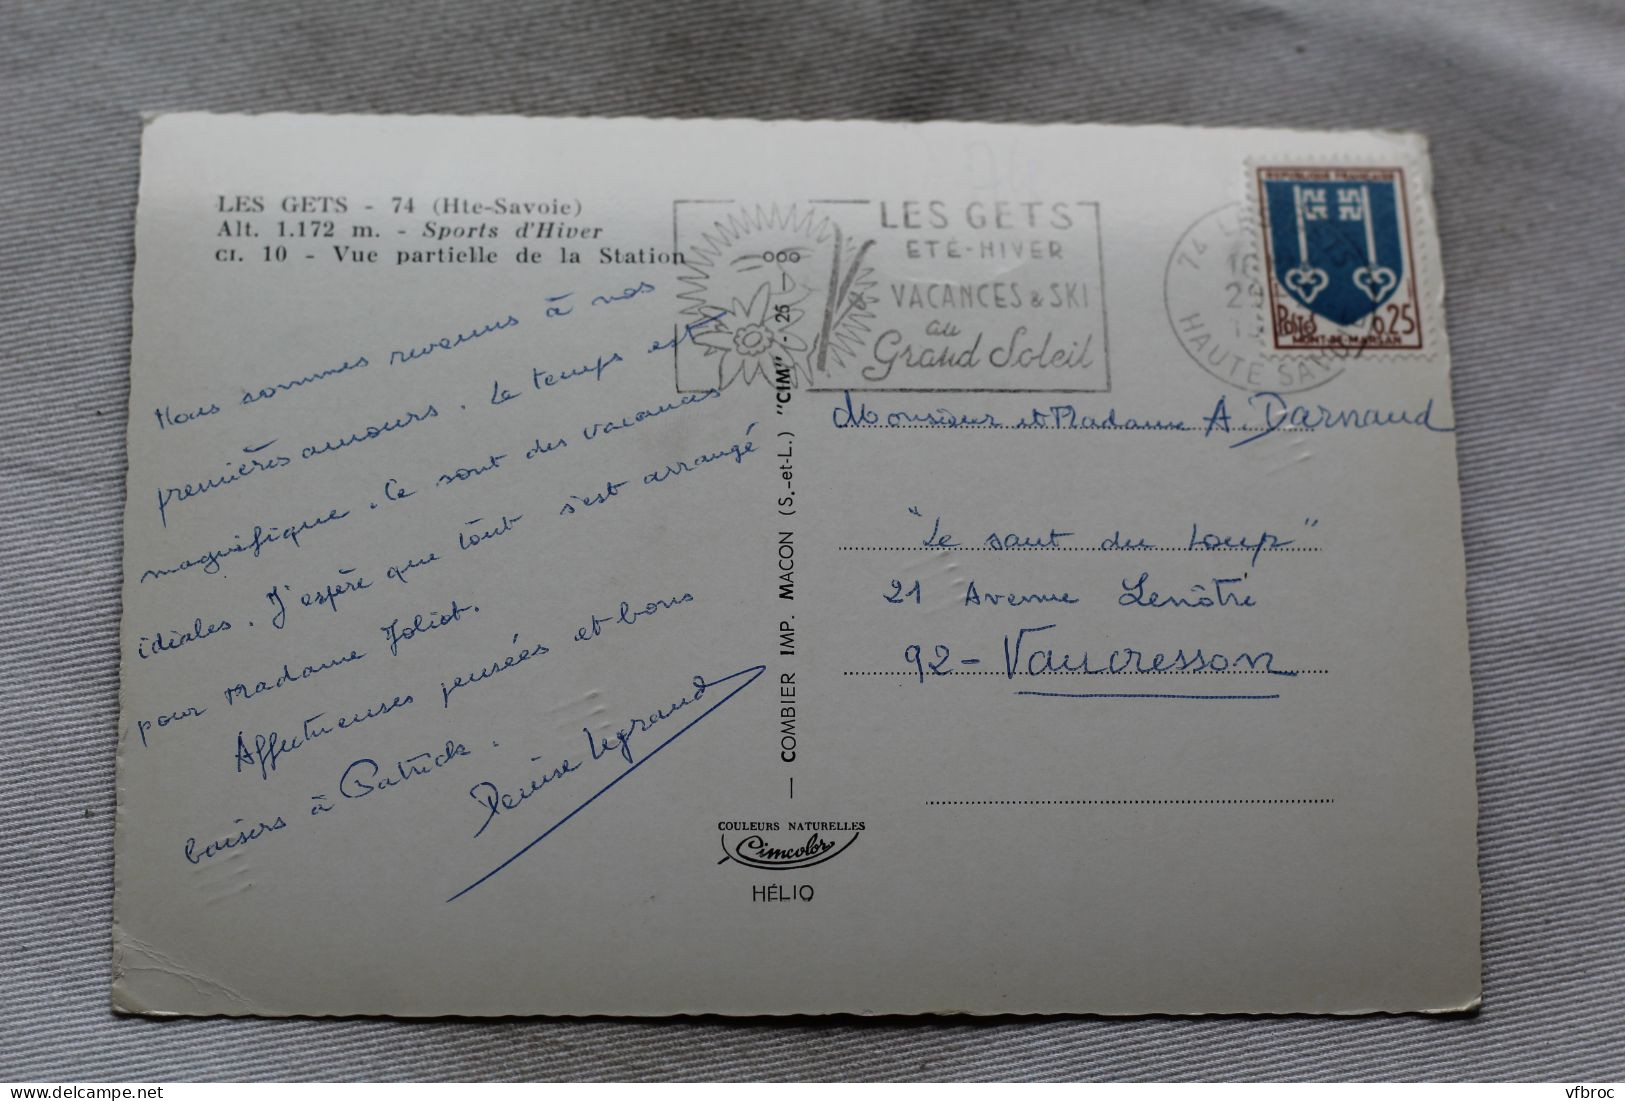 LES GETS - 74 (Hte-Savoie)
Alt. 1.172 m. - Sports d'Hiver
CI. 10 - Vue partielle de la Station
Nous sommes revenus à nos
premières amours. Le temps est
magnifique. Ce sont des vacances
idéales. J'espère que tout s'est arrangé
pour Madame Joliot.
Affectueuses pensées et bons
baisers à Patrick.
Denise Legrand
COMBIER IMP. MACON (S.-et-L.) "CIM" - 25
COULEURS NATURELLES
Cimcolor
HÉLIO
LES GETS
ETÉ-HIVER
VACANCES & SKI
au
Grand Soleil
74 LES GETS
HAUTE SAVOIE
REPUBLIQUE FRANÇAISE
Postes 0,25
MONT-DE-MARSAN
Monsieur et Madame A. Darnaud
"Le saut du Loup"
21 Avenue Lenôtre
92 - Vaucresson
vfbroc